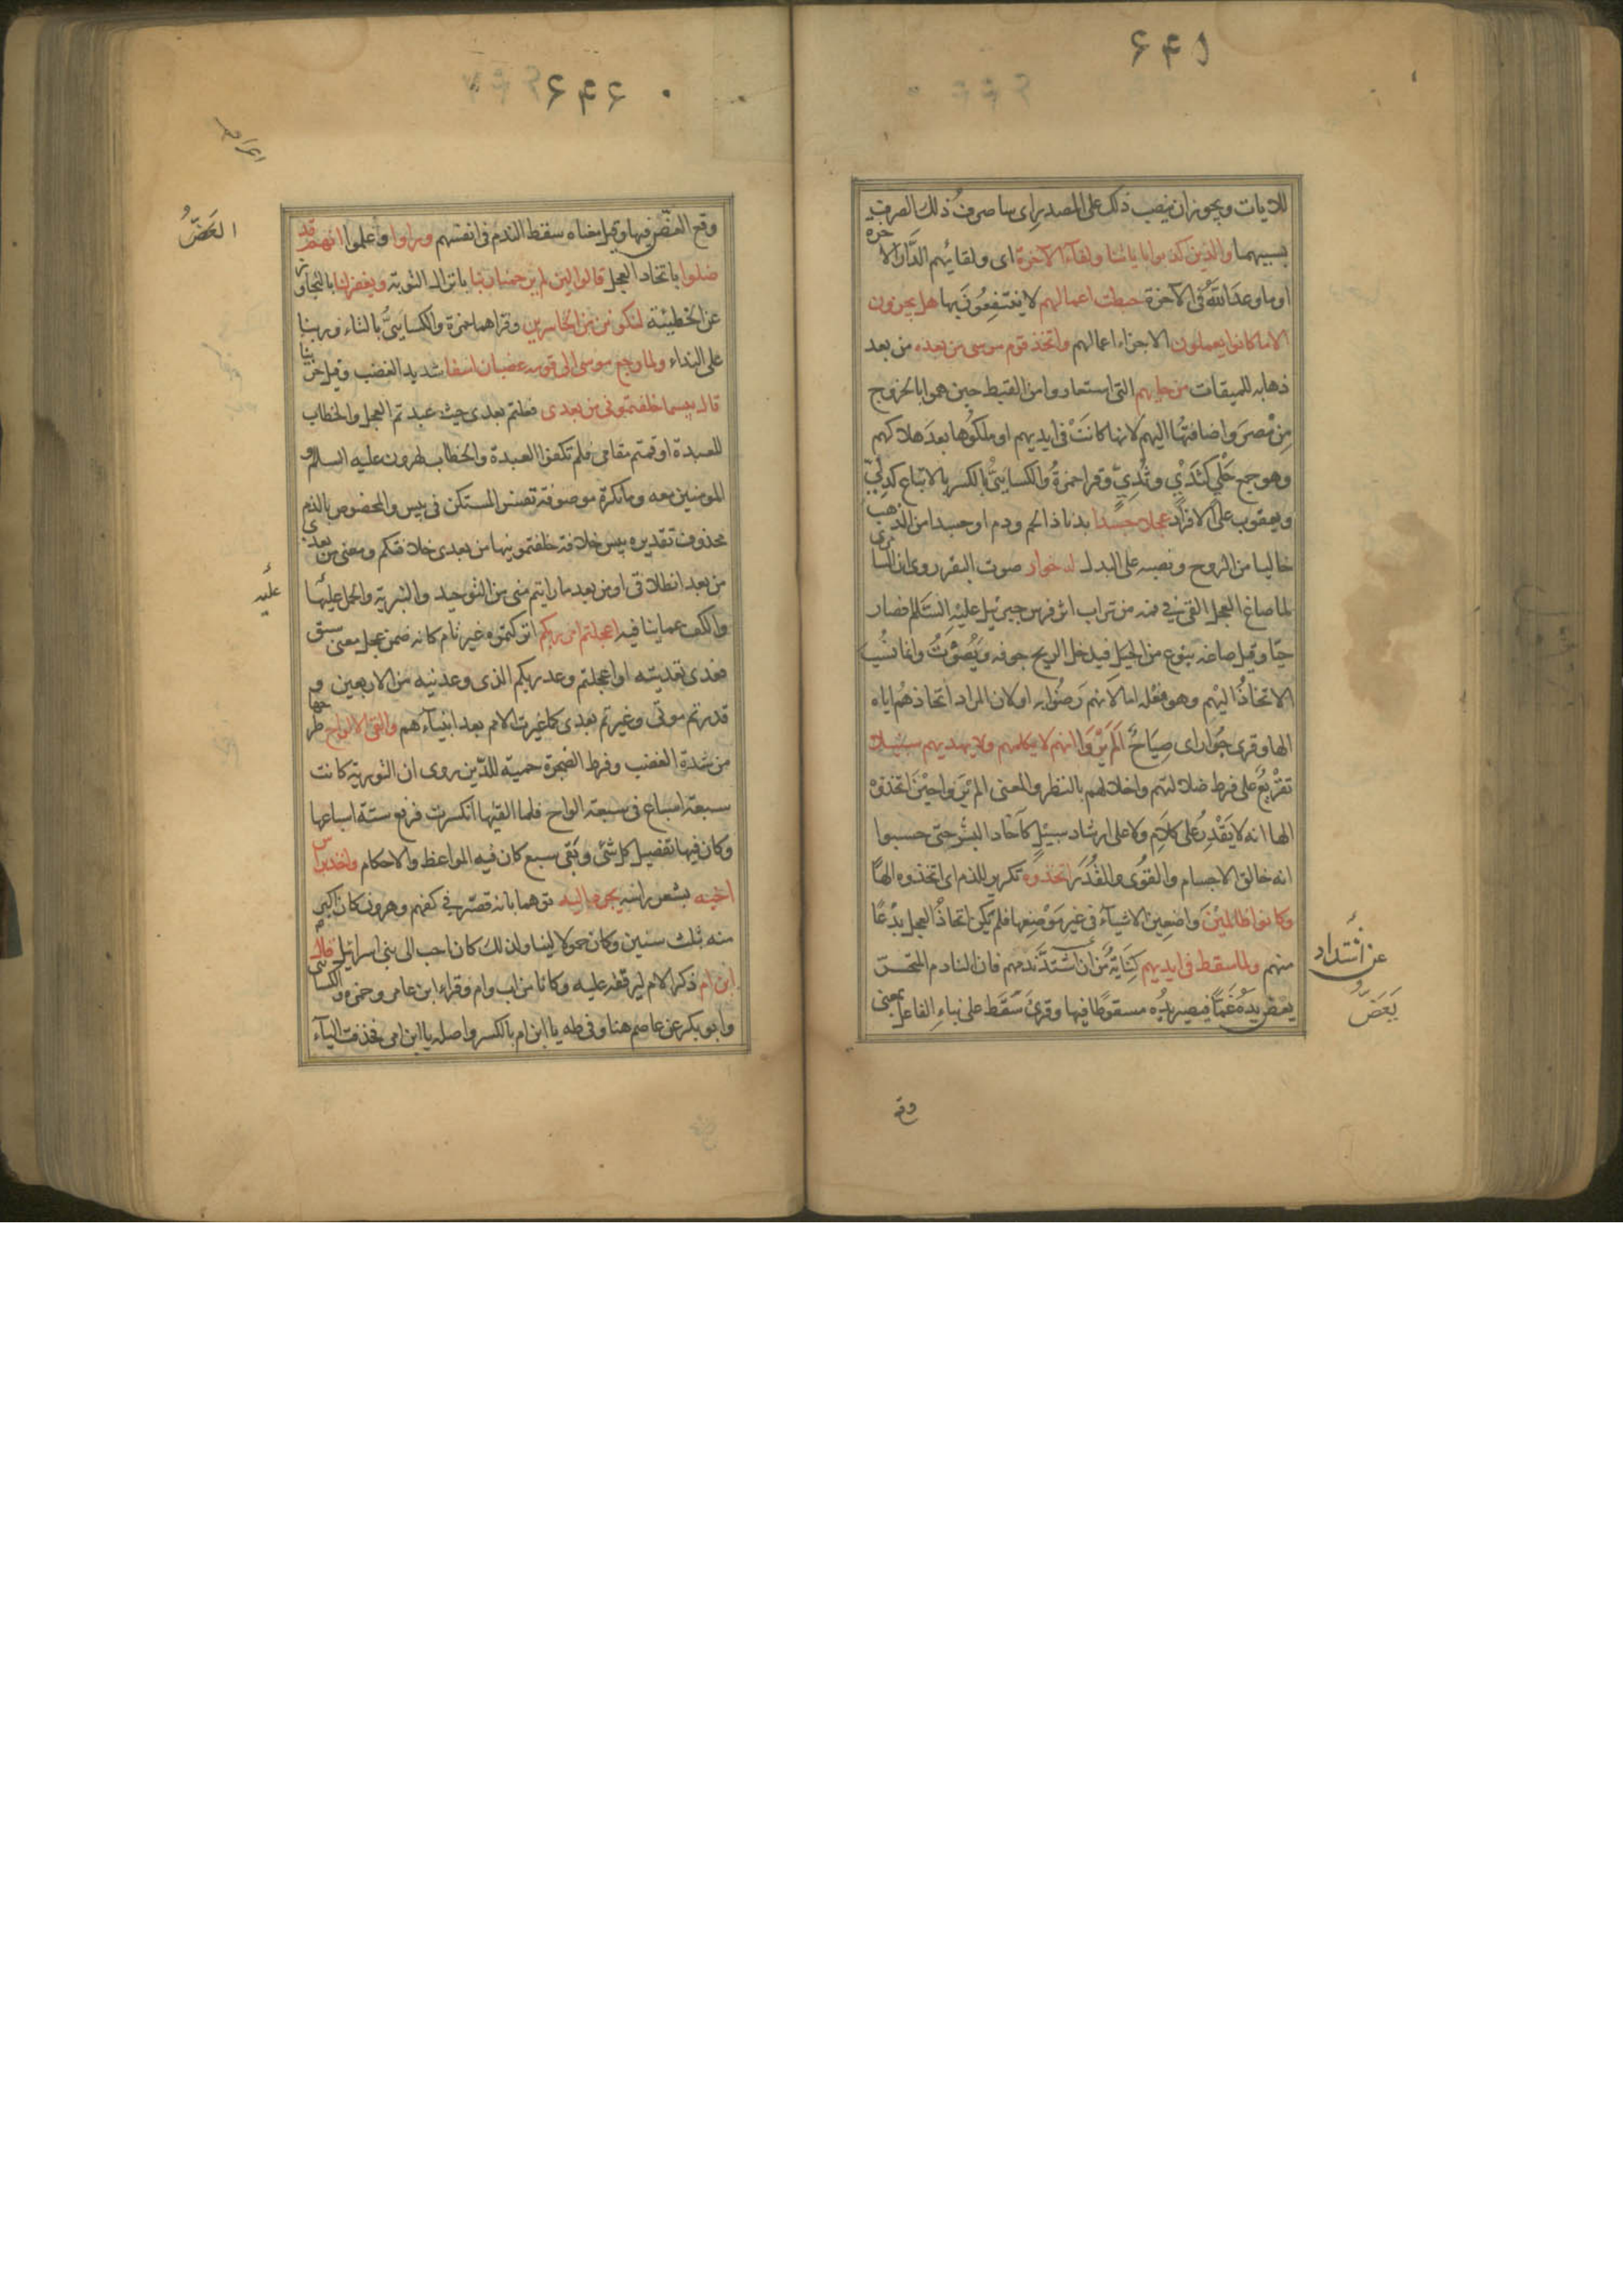 ۶۴۵
للآيات ويجوز ان ينصب ذلك على المصدر اى ساصرف ذلك الصرف
بسببهما والذين كذبوا باياتنا ولقاء الآخرة اى ولقائهم الدَّار الآخرة
او ما وعد اللّٰه فى الآخرة حبطت اعمالهم لا ينتفِعُونَ بها هل يجزون
الا ما كانوا يعملون الا جزاء اعمالهم واتخذ قوم موسى من بعده من بعد
ذهابه للميقات من حليهم التى استعاروا من القبط حين هموا بالخروج
مِن مْصرَ واضافتها اليهم لانها كانَتْ فى ايديهم او ملكُوها بعدَ هلاكهم
وهو جمع حَلْي كثَدْيٍ وثُدِيٍّ وقرا حمزةُ والكسايىُّ بالكسر بالاتباع كدِلِيٍّ
ويعقوب على الافراد عجلا جسدا بدنا ذا لحم ودم او جسدا من الذهب
خاليا من الروح ونصبه على البدل له خوار صوت البقر روى ان السامرى
لما صاغ العجل القى فى فمه من تراب اثر فرس جبرئيل عليه السَّلام فصار
حيّا وقيل صاغه بنوع من الحِيَل فيدخل الريح جوفه ويُصوِّتُ وانما نُسِبَ
الاتخاذُ اليهم وهو فعْله اما لانهم رَضُوا به او لان المراد اتخاذهُم اياه
الها وقرئ جُؤار اى صِيَاحٌ اَلَم يَرَوا انه لا يكلمهم ولا يهديهم سبيلا
تقْريعٌ على فرط ضلالتهم واخلالهم بالنظر والمعنى الم يَرَوا حيْنَ اتخذوْه
الها انه لا يَقْدِرُ على كلامٍ ولا على ارشاد سبيْلٍ كآحاد البشَر حتى حسبوا
انه خالق الاجسام والقُوٰى والقُدَر اتخذوه تكرير للذم اى اتخذوه الهًا
وكانوا ظالميْنَ وَاضعِين الاشيآءَ فى غير مَوْضِعِها فلم يَكُن اتخاذُ العجل بِدْعًا
منهم ولما سقط فى ايديهم كِنَايَةٌ مّن ان اشتدَّ ندمهم فان النادم المتحسّر
عن اشتداد
يعض يدهُ غَمًّا فيصير يدُه مسقوطًا فيها وقرئ سَقَط على بناءِ الفاعل بمعنى
يَعَضُّ
وقع
۶۴۶
وقع العَضّ فيها وقيل معناه سقط الندم فى انفسهم وراوا وأعلموا انهم قد
العَضُّ
ضلوا باتخاد العجل قالوا لئن لم يرحمنا ربنا بانزال التوبة ويغفر لنا بالتجاوز
عن الخطيئة لنكونن من الخاسرين وقراهما حمزة والكسايىُّ بالتاء وربنا
على النداء ولما رجع موسى الى قومه غضبان اسفا شديد الغضب وقيل حزينا
قال بئسما خلفتمونى من بعدى فعلتم بعدى حيث عبدتم العجل والخطاب
للعبدة او قمتم مقامى فلم تكفوا العبدة والخطاب لهرون عليه السلام و
المومنين معه وما نكرة موصوفة تفسر المستكن فى بيس والمخصوص بالذم
محذوف تقديره بيس خلافة خلفتمونيها من بعدى خلافتكم ومعنى من بعدى
من بعد انطلاقى او من بعد ما رايتم منى من التوحيد والتنزيه والحمل عليها
عليه
والكف عما ينافيه اعجلتم امر ربكم اتركتموه غير تام كانه ضمن عجل معنى سبق
فعدى تعديته او اعجلتم وعد ربكم الذى وعدنيه من الاربعين و
قدرتم موتى وغيرتم بعدى كما غيرت الامم بعد انبيآءهم والقى الالواح طرحها
من شدة الغضب وفرط الضجرة حمية للدّين روى ان التورية كانت
سبعة اسباع فى سبعة الواح فلما القيها انكسرت فرفع ستة اسباعها
وكان فيها تفصيل كل شئ وبقى سبع كان فيه المواعظ والاحكام واخذ براس
اخيه بشعر راسه يجره اليه توهما بانه قصّر فى كفهم وهرون كان اكبر
منه بثلث سنين وكان حمولا لينا ولذلك كان احب الى بنى اسرائيل قال
ابن ام ذكر الام ليرققه عليه وكانا من اب وام وقراء ابن عامر وحمزه والكسائى
وابو بكر عن عاصم هنا وفى طه يا ابن ام بالكسر واصله يا ابن امى فحذفت اليآء